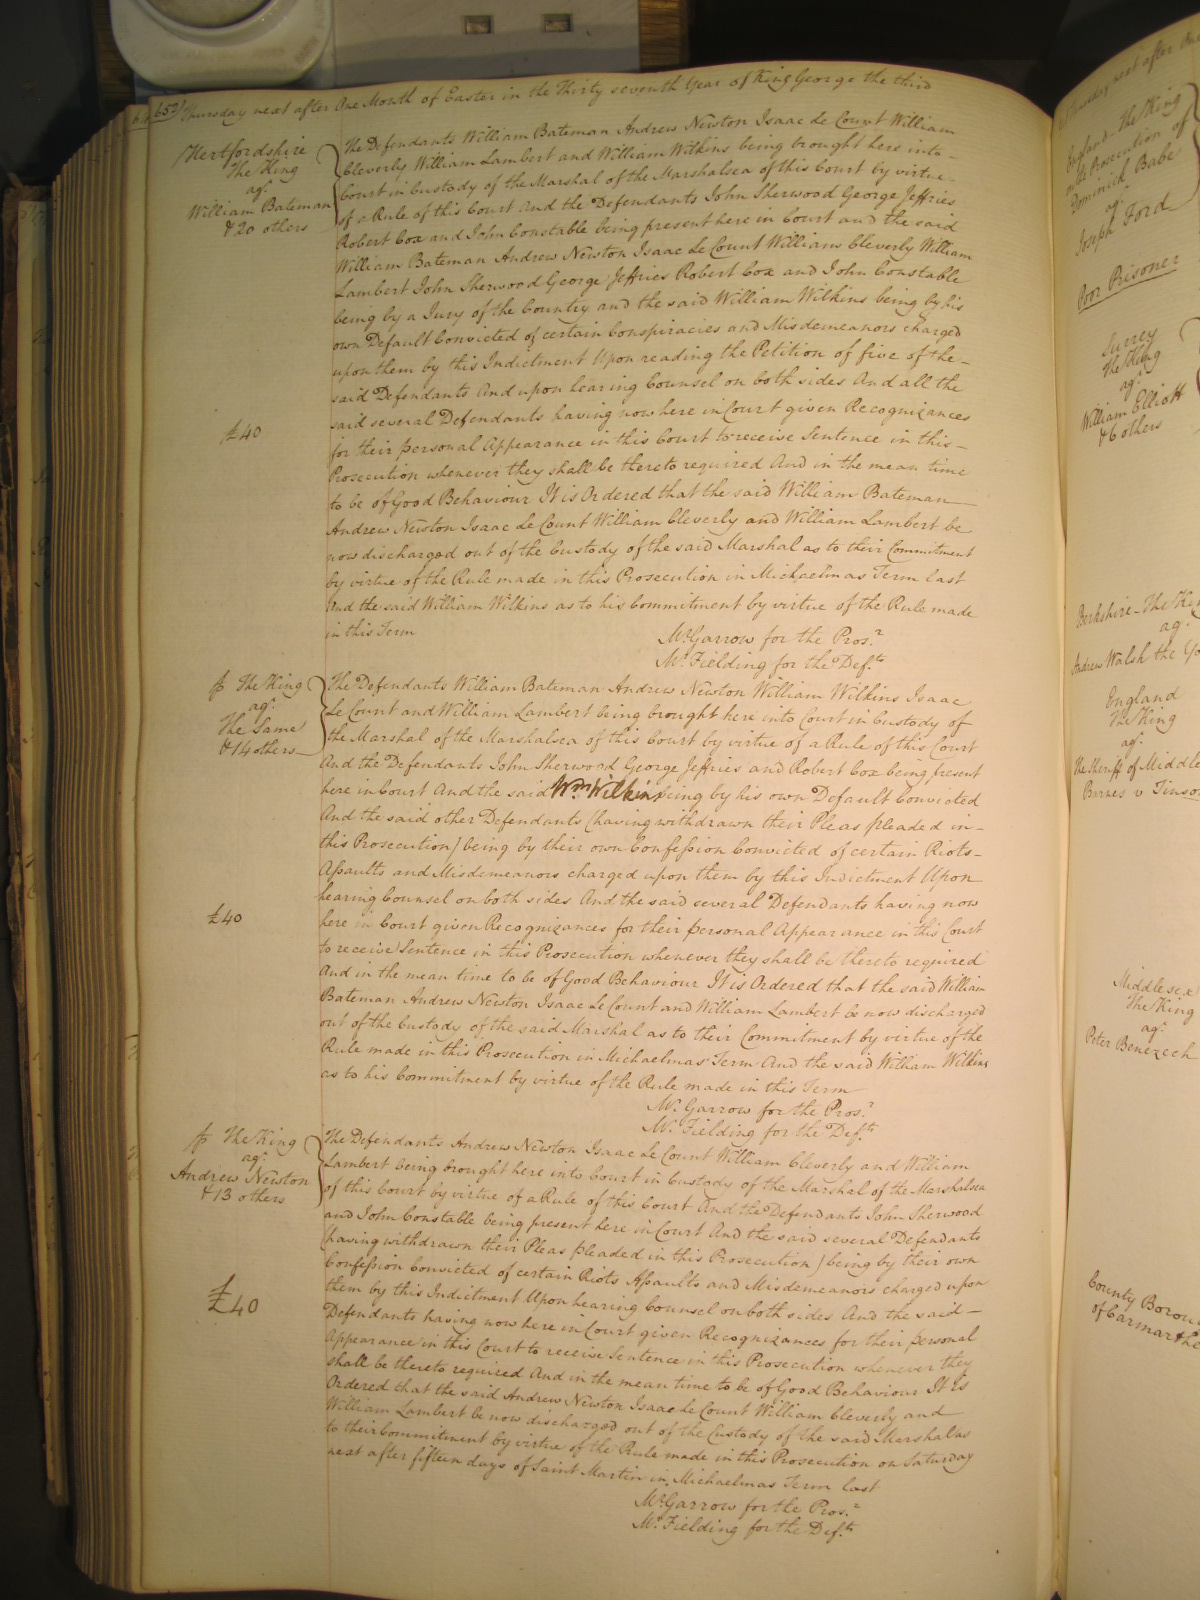 652) Thursday next after One Month of Easter in the Thirty seventh Year of King George the third
Hertfordshire
The King
agt.
William Bateman
& 20 others
The Defendants William Bateman Andrew Newton Isaac Le Count William
Cleverly William Lambert and William Wilkins being brought here into
Court in Custody of the Marshal of the Marshalsea of this Court by virtue
of a Rule of this Court And the Defendants John Sherwood George Jeffries
Robert Cox and John Constable being present here in Court and the said
William Bateman Andrew Newton Isaac Le Count Williams Cleverly William
Lambert John Sherwood George Jeffries Robert Cox and John Constable
being by a Jury of the Country and the said William Wilkins being by his
own Default Convicted of certain Conspiracies and Misdemeanors charged
upon them by this Indictment Upon reading the Petition of five of the
said Defendants And upon hearing Counsel on both sides And all the
said several Defendants having now here in Court given Recognizances
£40
for their personal Appearance in this Court to receive Sentence in this
Prosecution whenever they shall be thereto required And in the mean time
to be of Good Behaviour It is Ordered that the said William Bateman
Andrew Newton Isaac Le Count William Cleverly and William Lambert be
now discharged out of the Custody of the said Marshal as to their Commitment
by virtue of the Rule made in this Prosecution in Michaelmas Term last
And the said William Wilkins as to his Commitment by virtue of the Rule made
in this Term
Mr. Garrow for the Pros.r
Mr. Fielding for the Def.ts
The King
agt.
The Same
& 14 others
The Defendants William Bateman Andrew Newton William Wilkins Isaac
Le Count and William Lambert being brought here into Court in Custody of
the Marshal of the Marshalsea of this Court by virtue of a Rule of this Court
And the Defendants John Sherwood George Jeffries and Robert Cox being present
here in Court And the said Wm. Wilkins being by his own Default Convicted
And the said other Defendants (having withdrawn their Pleas pleaded in
this Prosecution) being by their own Confession Convicted of certain Riots
Assaults and Misdemeanors charged upon them by this Indictment Upon
hearing Counsel on both sides And the said several Defendants having now
£40
here in Court given Recognizances for their personal Appearance in this Court
to receive Sentence in this Prosecution whenever they shall be thereto required
And in the mean time to be of Good Behaviour It is Ordered that the said William
Bateman Andrew Newton Isaac Le Count and William Lambert be now discharged
out of the Custody of the said Marshal as to their Commitment by virtue of the
Rule made in this Prosecution in Michaelmas Term And the said William Wilkins
as to his Commitment by virtue of the Rule made in this Term
Mr. Garrow for the Pros.r
Mr. Fielding for the Def.ts
The King
agt.
Andrew Newton
& 13 others
The Defendants Andrew Newton Isaac Le Count William Cleverly and William
Lambert being brought here into Court in Custody of the Marshal of the Marshalsea
of this Court by virtue of a Rule of this Court And the Defendants John Sherwood
and John Constable being present here in Court And the said several Defendants
(having withdrawn their Pleas pleaded in this Prosecution) being by their own
Confession Convicted of certain Riots Assaults and Misdemeanors charged upon
them by this Indictment Upon hearing Counsel on both sides And the said
£40
Defendants having now here in Court given Recognizances for their personal
Appearance in this Court to receive Sentence in this Prosecution whenever they
shall be thereto required And in the mean time to be of Good Behaviour It is
Ordered that the said Andrew Newton Isaac Le Count William Cleverly and
William Lambert be now discharged out of the Custody of the said Marshal as
to their Commitment by virtue of the Rule made in this Prosecution on Saturday
next after fifteen days of Saint Martin in Michaelmas Term last
Mr. Garrow for the Pros.r
Mr. Fielding for the Def.ts
Thursday next after One
England The King
on the Prosecution of
Dominick Babe
agt.
Joseph Ford
Poor Prisoner
Surrey
The King
agt.
William Elliott
& 6 others
Berkshire The King
agt.
Andrew Walsh the
England
The King
agt.
The Sheriff of Middle
Barnes v
Middlesex
The King
agt.
Peter Benezech
County Borou
of Carmarthe